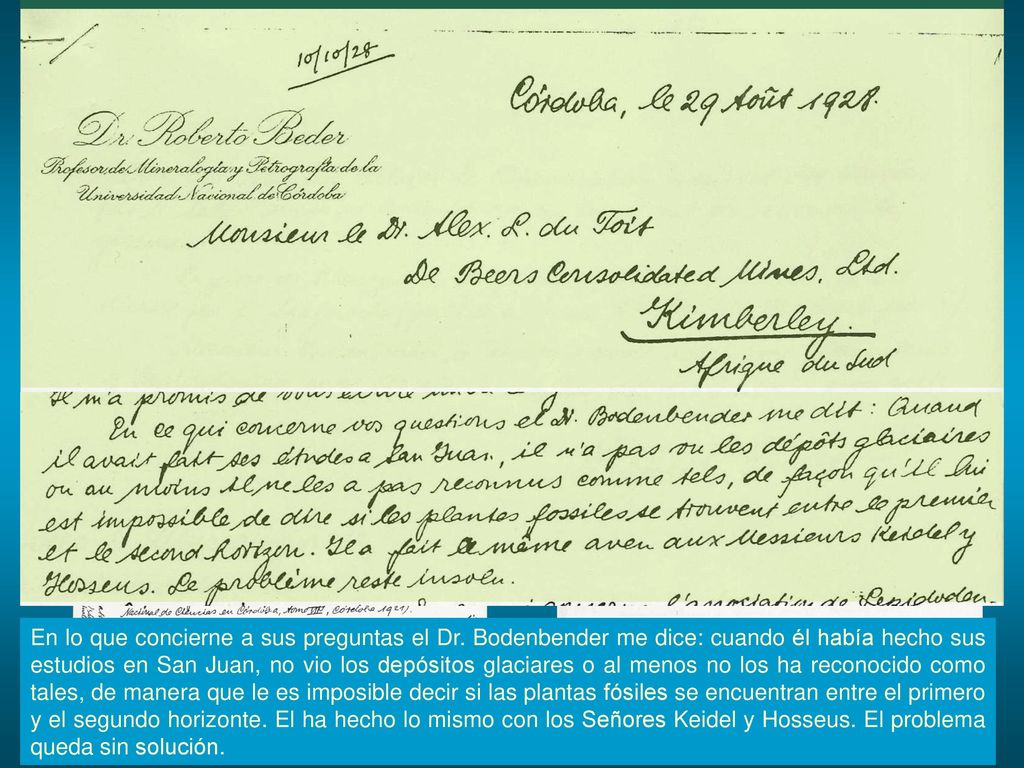 10/10/28
Córdoba, le 29 Août 1928.
Dr. Roberto Beder
Profesor de Mineralogía y Petrografía de la
Universidad Nacional de Córdoba
Monsieur le Dr. Alex. L. du Toit
De Beers Consolidated Mines, Ltd.
Kimberley.
Afrique du Sud
Il m'a promis de vous écrire
En ce qui concerne vos questions el Dr. Bodenbender me dit: Quand
il avait fait ses études a San Juan, il n'a pas vu les dépôts glaciaires
ou au moins il ne les a pas reconnus comme tels, de façon qu'il lui
est impossible de dire si les plantes fossiles se trouvent entre le premier
et le second horizon. Il a fait le même aveu aux Messieurs Keidel y
Hosseus. Le problème reste insolu.
Nacional de Ciencias en Córdoba, tomo VIII, Córdoba 1921).
concerne l'association de Lepidoden-
En lo que concierne a sus preguntas el Dr. Bodenbender me dice: cuando él había hecho sus
estudios en San Juan, no vio los depósitos glaciares o al menos no los ha reconocido como
tales, de manera que le es imposible decir si las plantas fósiles se encuentran entre el primero
y el segundo horizonte. El ha hecho lo mismo con los Señores Keidel y Hosseus. El problema
queda sin solución.